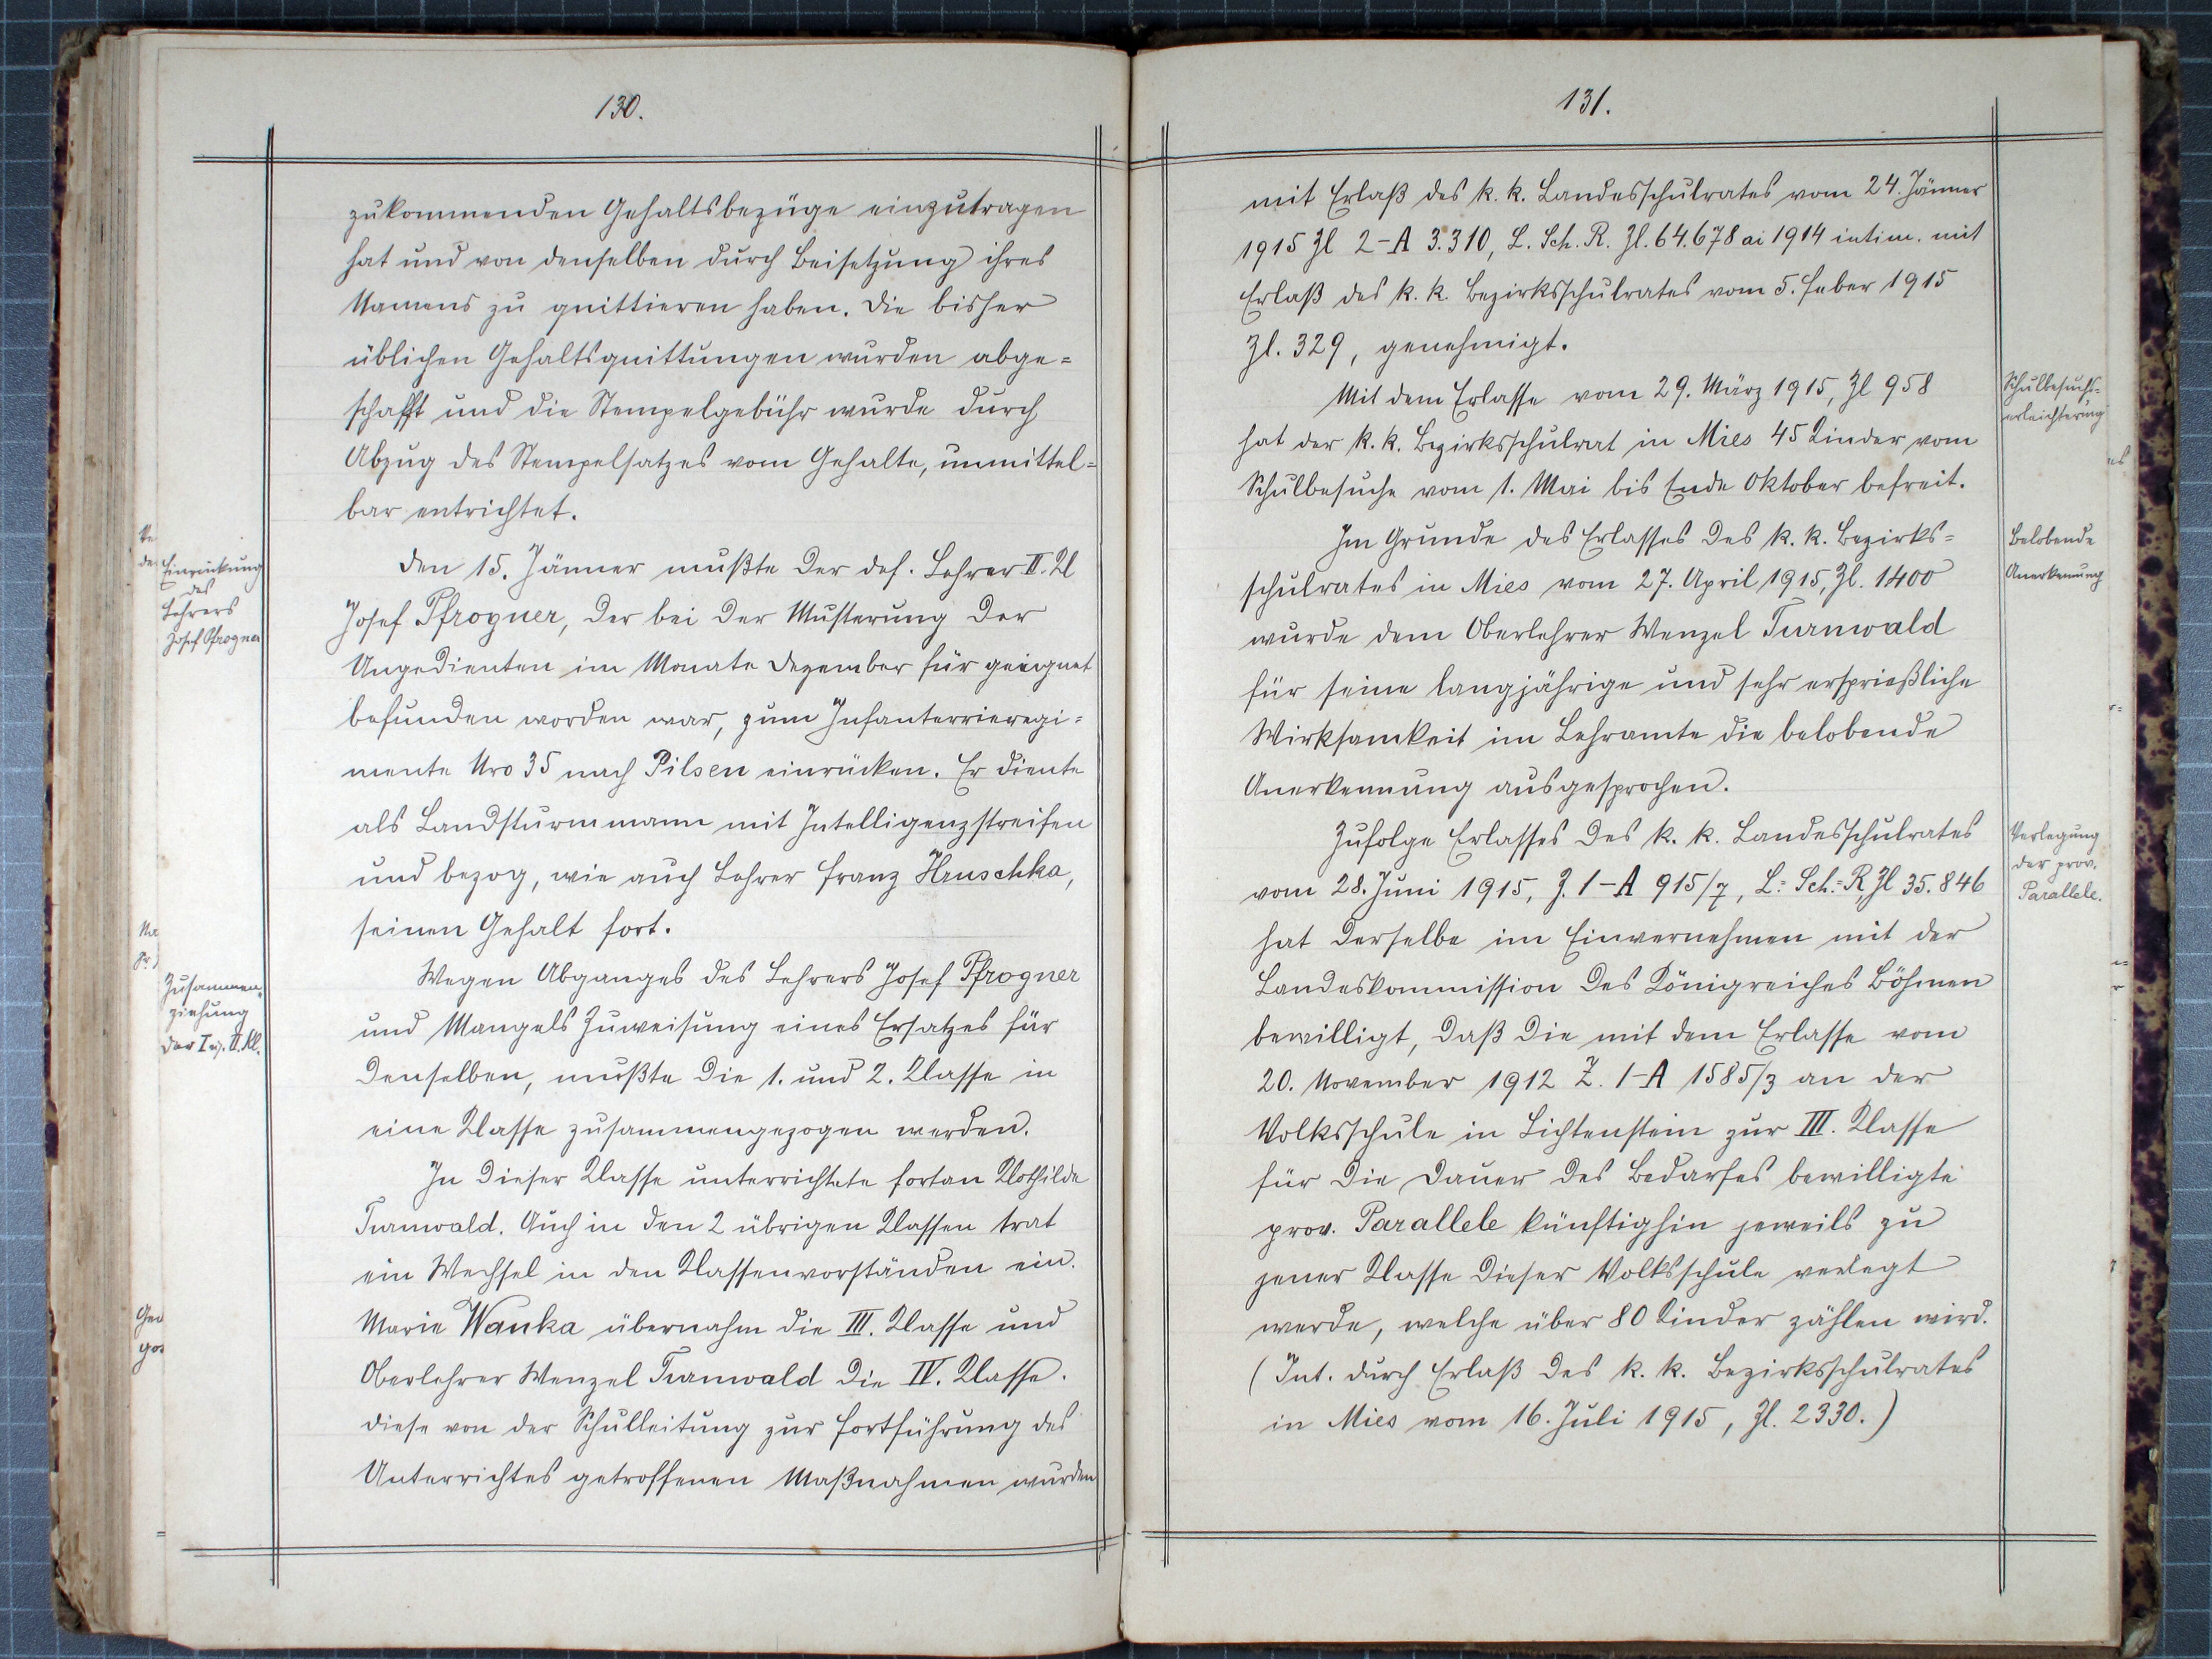 130.
zukommenden Gehaltsbezüge einzutragen
hat und von denselben durch Beisetzung ihres
Namens zu quittieren haben. Die bisher
üblichen Gehaltsquittungen wurden abge=
schafft und die Stempelgebühr wurde durch
Abzug des Stempelsatzes vom Gehalte, unmittel=
bar entrichtet.
Einrückung
des
Lehrers
Josef Pfrogner
Den 15. Jänner mußte der def. Lehrer II. Kl
Josef Pfrogner, der bei der Musterung der
Ungedienten im Monate Dezember für geeignet
befunden worden war, zum Infanterrieregi=
mente Nro 35 nach Pilsen einrücken. Er diente
als Landsturmmann mit Intelligenzstreifen
und bezog, wie auch Lehrer Franz Hruschka,
seinen Gehalt fort.
Zusammen=
ziehung
der I. u. II. Kl.
Wegen Abganges des Lehrers Josef Pfrogner
und Mangels Zuweisung eines Ersatzes für
denselben, mußte die 1. und 2. Klasse in
eine Klasse zusammengezogen werden.
In dieser Klasse unterrichtete fortan Klothilde
Turnwald. Auch in den 2 übrigen Klassen trat
ein Wechsel in den Klassenvorständen ein.
Marie Wanka übernahm die III. Klasse und
Oberlehrer Wenzel Turnwald die IV. Klasse.
Diese von der Schulleitung zur Fortführung des
Unterrichtes getroffenen Maßnahmen wurden
131.
mit Erlaß des k. k. Landesschulrates vom 24. Jänner
1915 Zl 2-A 3.310, L. Sch. R. Zl. 64.678 ai 1914 intim. mit
Erlaß des k. k. Bezirksschulrates vom 5. Feber 1915
Zl. 329, genehmigt.
Schulbesuchs=
erleichterung
Mit dem Erlasse vom 29. März 1915, Zl 958
hat der k. k. Bezirksschulrat in Mies 45 Kinder vom
Schulbesuche vom 1. Mai bis Ende Oktober befreit.
Belobende
Anerkennung
Im Grunde des Erlasses des k. k. Bezirks=
schulrates in Mies vom 27. April 1915, Zl. 1400
wurde dem Oberlehrer Wenzel Turnwald
für seine langjährige und sehr ersprießliche
Wirksamkeit im Lehramte die belobende
Anerkennung ausgesprochen.
Verlegung
der prov.
Parallele.
Zufolge Erlasses des k. k. Landesschulrates
vom 28. Juni 1915, Z. 1-A 915/7, L.=Sch.=R. Zl 35.846
hat derselbe im Einvernehmen mit der
Landeskommission des Königreiches Böhmen
bewilligt, daß die mit dem Erlasse vom
20. November 1912 Z. 1-A 1585/3 an der
Volksschule in Lichtenstein zur III. Klasse
für die Dauer des Bedarfes bewilligte
prov. Parallele künftighin jeweils zu
jener Klasse dieser Volksschule verlegt
werde, welche über 80 Kinder zählen wird.
(Int. durch Erlaß des k. k. Bezirksschulrates
in Mies vom 16. Juli 1915, Zl. 2330.)